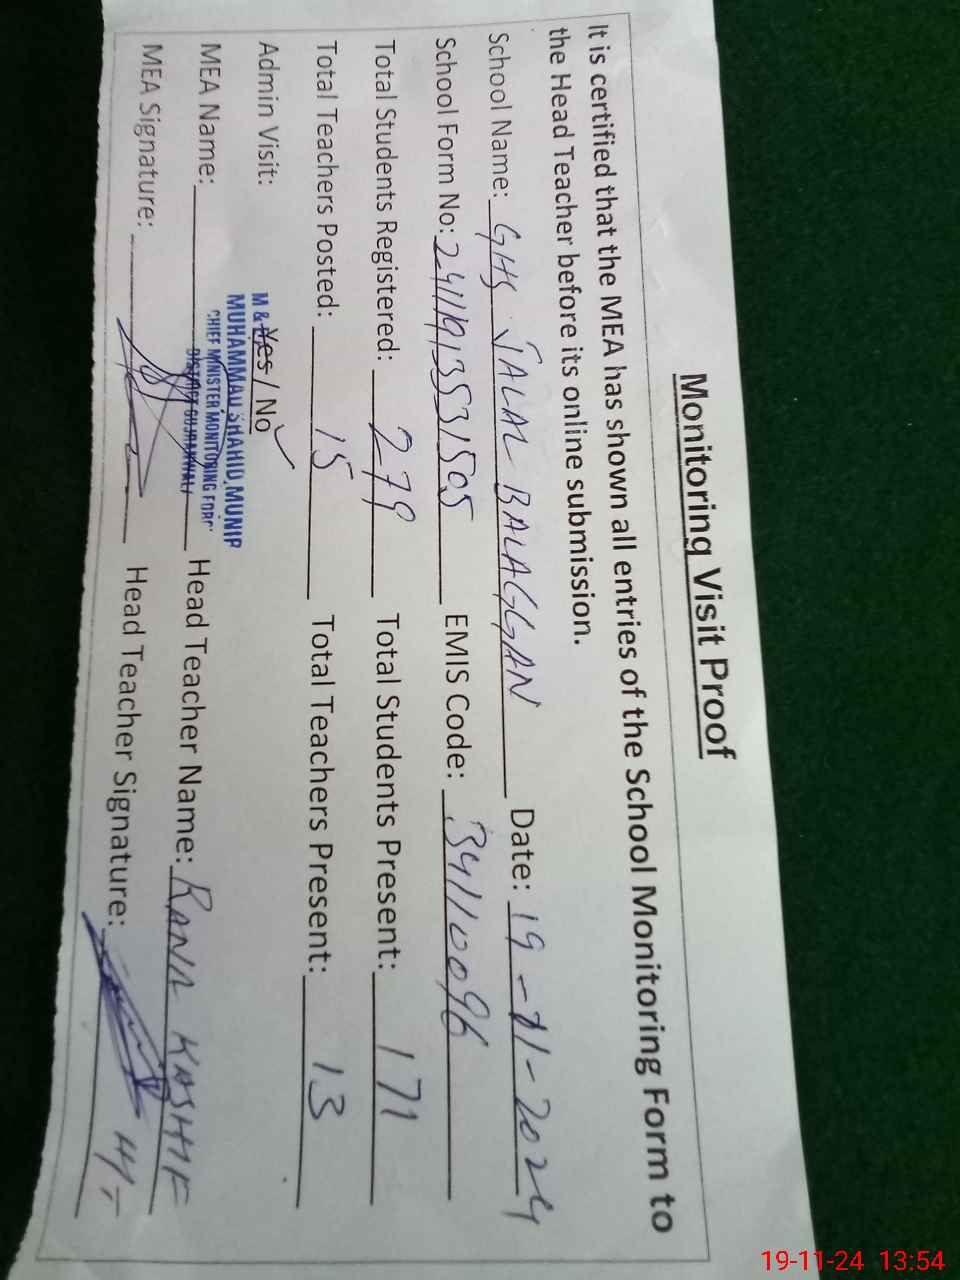 Monitoring Visit Proof
It is certified that the MEA has shown all entries of the School Monitoring Form to
the Head Teacher before its online submission.
School Name: GHS JALAL BALAGGAN Date: 19-11-2024
School Form No: 24111913531505 EMIS Code: 34110096
Total Students Registered: 279 Total Students Present: 171
Total Teachers Posted: 15 Total Teachers Present: 13
Admin Visit: Yes / No ✓
M &
MUHAMMAD SHAHID MUNIR
CHIEF MINISTER MONITORING FORC
DISTRICT GUJRANWALA
MEA Name: Head Teacher Name: RANA KASHIF
MEA Signature: Head Teacher Signature: H/T
19-11-24 13:54